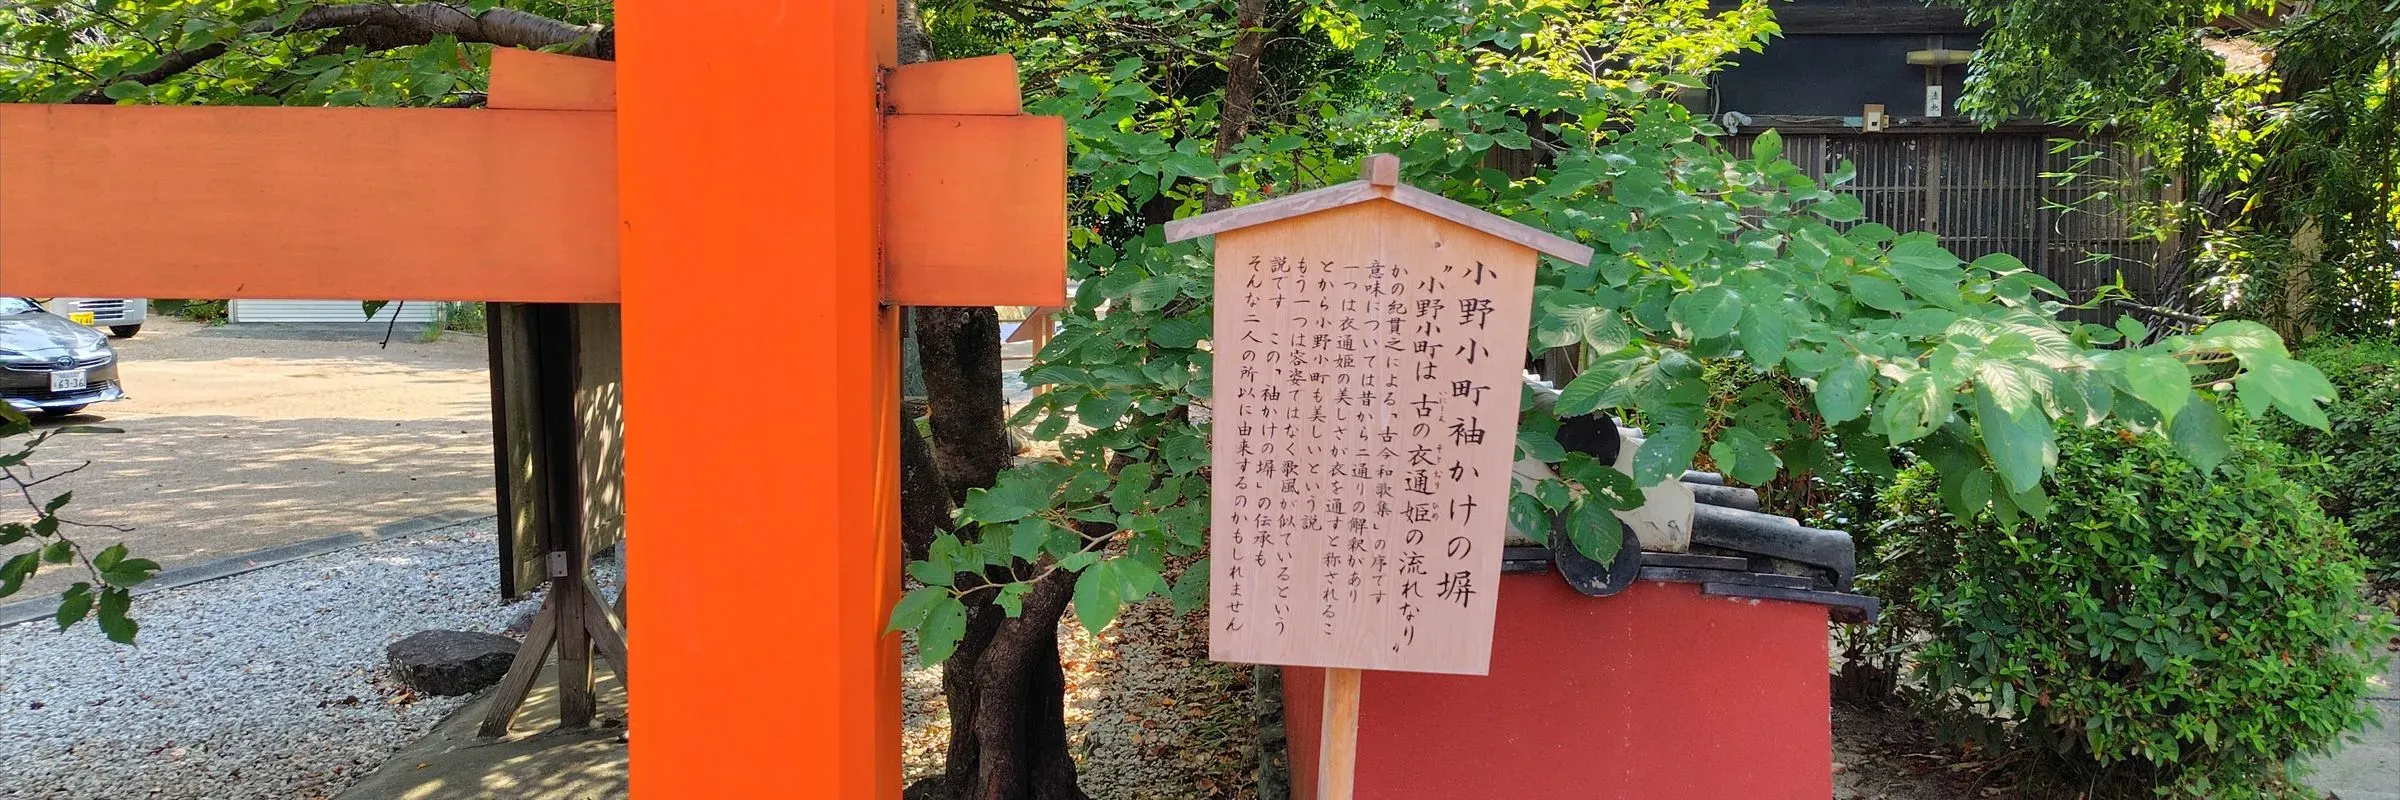 小野小町袖かけの塀
"小野小町は古の衣通姫の流れなり"
いにしへ そとおり ひめ
かの紀貫之による「古今和歌集」の序です
意味については昔から二通りの解釈があり
一つは衣通姫の美しさが衣を通すと称されるこ
とから小野小町も美しいという説
もう一つは容姿ではなく歌風が似ているという
説です この「袖かけの塀」の伝承も
そんな二人の所以に由来するのかもしれません
63-36